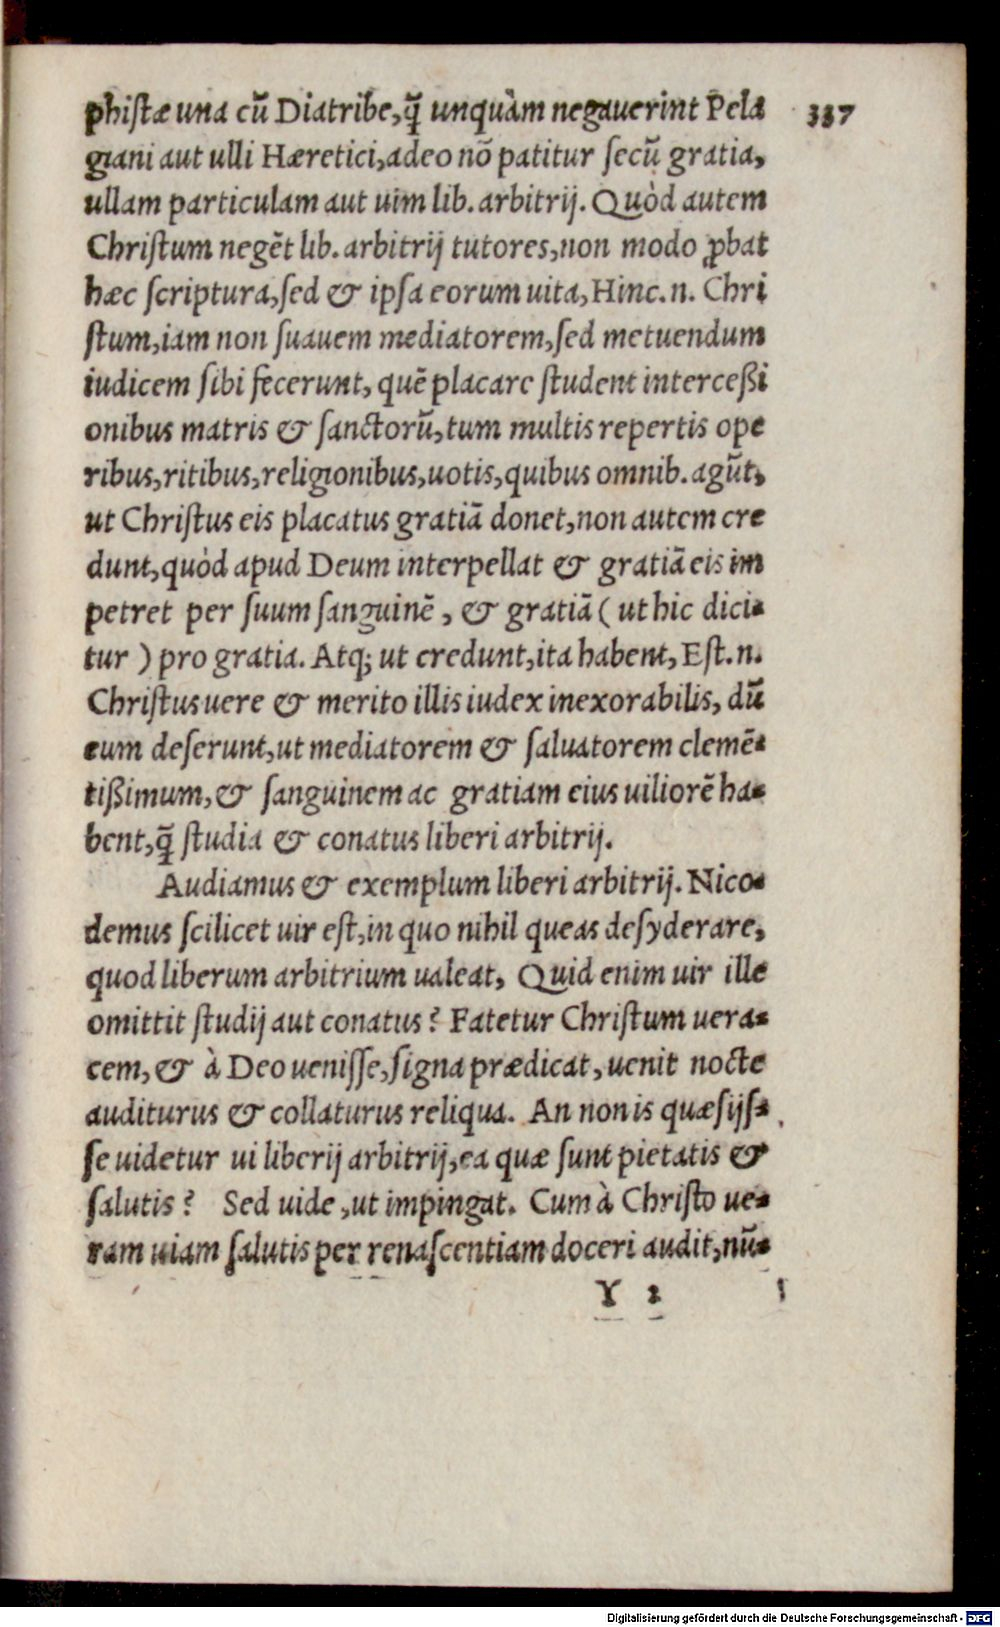 phiſtæ una cũ Diatribe, q̃ unquàm negauerint Pela
giani aut ulli Hæretici, adeo nõ patitur ſecũ gratia,
ullam particulam aut uim lib. arbitrij. Quòd autem
Chriſtum negẽt lib. arbitrij tutores, non modo ꝓbat
hæc ſcriptura, ſed & ipſa eorum uita, Hinc .n. Chri
ſtum, iam non ſuauem mediatorem, ſed metuendum
iudicem ſibi fecerunt, quẽ placare ſtudent interceßi
onibus matris & ſanctorũ, tum multis repertis ope
ribus, ritibus, religionibus, uotis, quibus omnib. agũt,
ut Chriſtus eis placatus gratiã donet, non autem cre
dunt, quòd apud Deum interpellat & gratiã eis im
petret per ſuum ſanguinẽ, & gratiã ( ut hic dici-
tur ) pro gratia. Atq; ut credunt, ita habent, Eſt .n.
Chriſtus uere & merito illis iudex inexorabilis, dũ
eum deſerunt, ut mediatorem & ſaluatorem clemẽ-
tißimum, & ſanguinem ac gratiam eius uiliorẽ ha-
bent, q̃ ſtudia & conatus liberi arbitrij.
Audiamus & exemplum liberi arbitrij. Nico-
demus ſcilicet uir eſt, in quo nihil queas deſyderare,
quod liberum arbitrium ualeat, Quid enim uir ille
omittit ſtudij aut conatus? Fatetur Chriſtum uera-
cem, & à Deo ueniſſe, ſigna prædicat, uenit nocte
auditurus & collaturus reliqua. An non is quæſijſ-
ſe uidetur ui liberij arbitrij, ea quæ ſunt pietatis &
ſalutis? Sed uide, ut impingat. Cum à Chriſto ue-
ram uiam ſalutis per renaſcentiam doceri audit, nũ-
Y 2
337
Digitalisierung gefördert durch die Deutsche Forschungsgemeinschaft - DFG